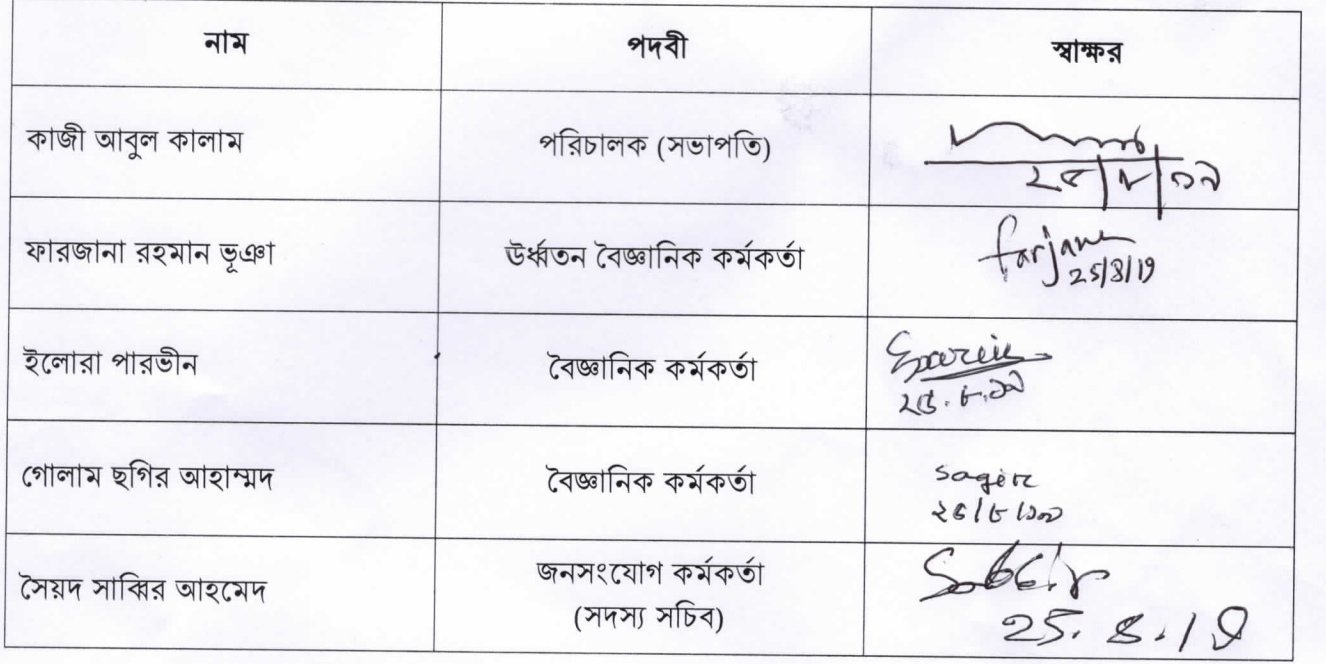 নাম পদবী স্বাক্ষর
কাজী আবুল কালাম পরিচালক (সভাপতি)
২৫/৮/১৯
ফারজানা রহমান ভূঞা ঊর্ধ্বতন বৈজ্ঞানিক কর্মকর্তা Farjana
25/8/19
ইলোরা পারভীন বৈজ্ঞানিক কর্মকর্তা
২৫.৮.১৯
গোলাম ছগির আহাম্মদ বৈজ্ঞানিক কর্মকর্তা sagir
২৫/৮/১৯
সৈয়দ সাব্বির আহমেদ জনসংযোগ কর্মকর্তা Sabbir
(সদস্য সচিব) 25.8.19